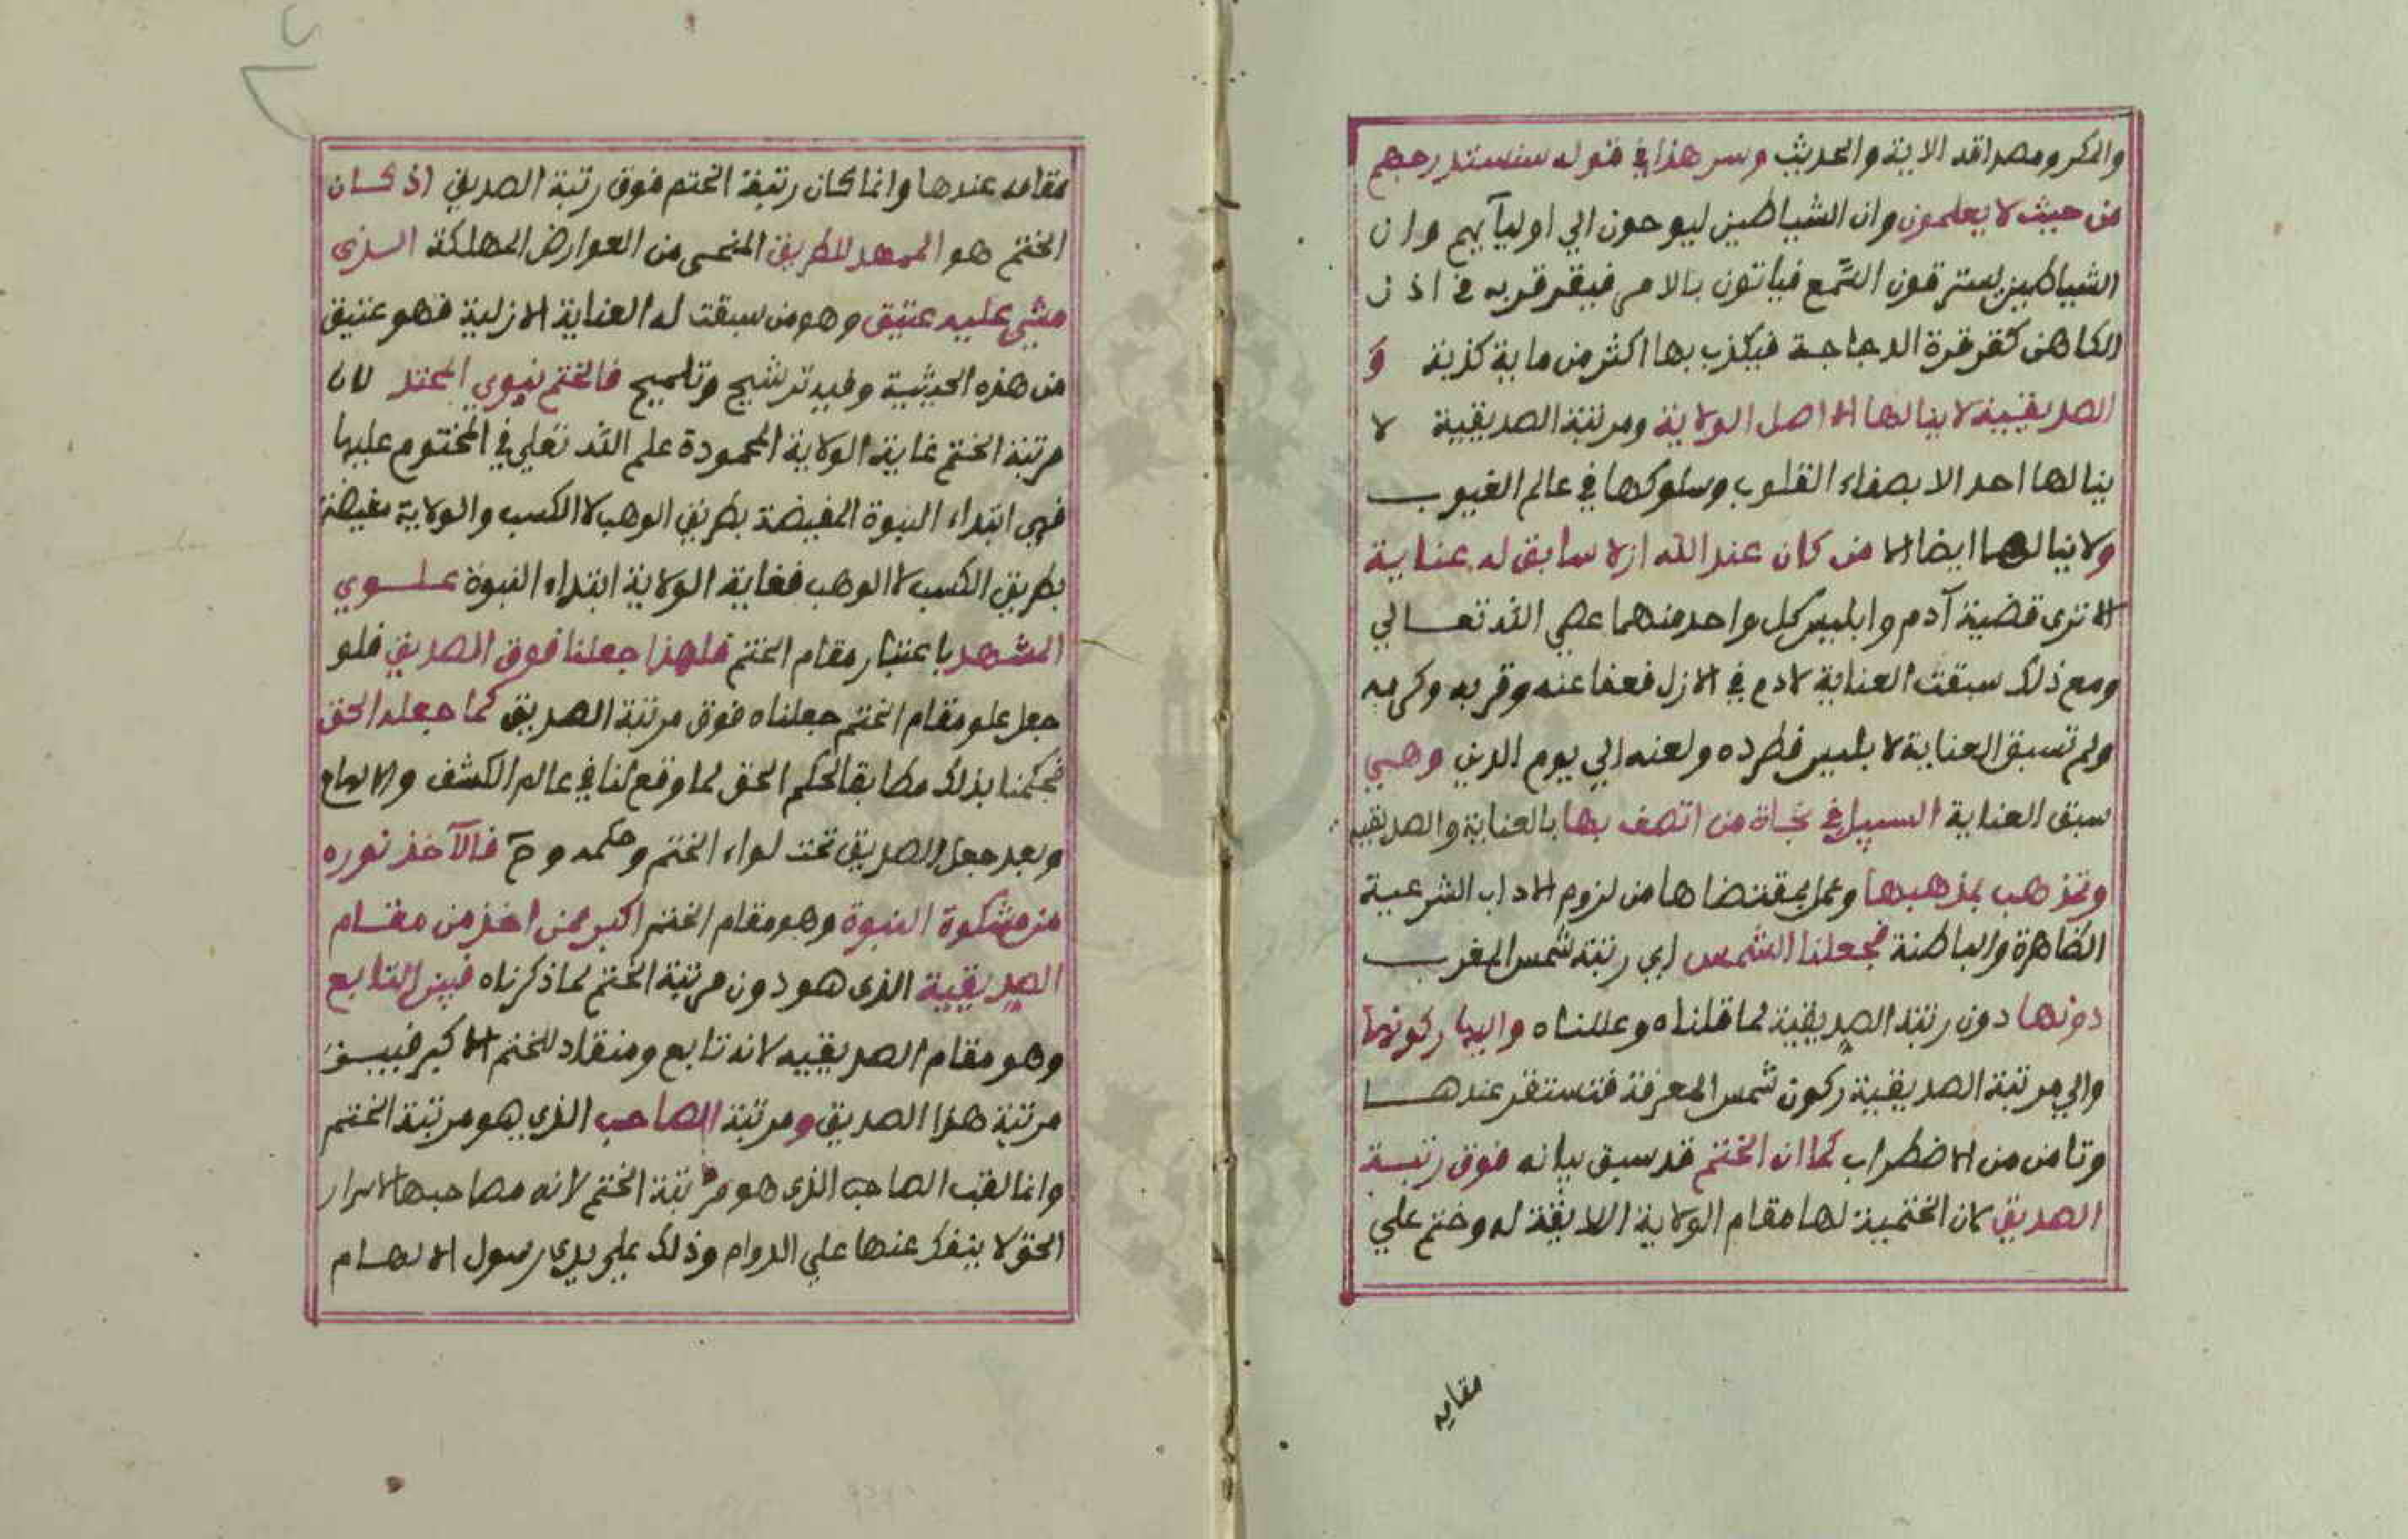 والمكر ومصداقه الاية والحديث وسر هذا في قوله سنستدرجهم
من حيث لا يعلمون وان الشياطين ليوحون الي اوليآيهم وان
الشياطين يسترقون السمع فياتون بالامر فيقرقربه في اذن
الكاهن كقرقرة الدجاجة فيكذب بها اكثر من ماية كذبة وَ
الصديقيية لا ينالها الا اهل الولاية ومرتبة الصديقية لا
ينالها احد الا بصفاء القلوب وسلوكها في عالم الغيوب
ولا ينالها ايضا الا من كان عند الله ازلا سابق له عناية
الا تري قضية آدم وابليس كل واحد منهما عصي الله تعالي
ومع ذلك سبقت العناية لادم في الازل فعفا عنه وقربه وكرمه
ولم تسبق العناية لابليس فطرده ولعنه الي يوم الدين وهي
سبق العناية السبيل في نجاة من اتصف بها بالعناية والصديقيه
وتمذهب بمذهبها وعمل بمقتضاها من لزوم الاداب الشرعية
الظاهرة والباطنة فجعلنا الشمس اي رتبة شمس المغرب
دونها دون رتبة الصديقية لما قلناه وعللناه واليها ركونها
والي مرتبة الصديقية ركون شمس المعرفة فتستقر عندها
وتامن من الاضطراب كما ان الختم قد سبق بيانه فوق رتبة
الصديق لان الختمية لها مقام الولاية اللايقة له وختم علي
مقامه
مقامه عندها وانما كان رتبة الختم فوق رتبة الصديق اذ كان
الختم هو الممهد للطريق المنجي من العوارض المهلكة الذي
مشي عليه عتيق وهو من سبقت له العناية الازلية فهو عتيق
من هذه الحيثية وفيه ترشيح وتلميح فالختم نبوي المحتد لان
مرتبة الختم غاية الولاية المحمودة علم الله تعلي في المختوم عليها
فهي ابتداء النبوة المفيضة بطريق الوهب لا الكسب والولاية مفيضة
بطريق الكسب لا الوهب فغاية الولاية ابتداء النبوة علوي
المشهد باعتبار مقام الختم فلهذا جعلنا فوق الصديق فلو
جعل علو مقام الختم جعلناه فوق مرتبة الصديق كما جعله الحق
فحكمنا بذلك مطابقا لحكم الحق لما وقع لنا في عالم الكشف والالهام
وبعد جعل الصديق تحت لواء الختم وحكمه وح فالآخذ نوره
من مشكوة النبوة وهو مقام الختم اكبر ممن اخذ من مقام
الصديقية الذي هو دون مرتبة الختم لما ذكرناه فبين التابع
وهو مقام الصديقيه لانه تابع ومنقاد للختم الاكبر فبين
مرتبة هذا الصديق ومرتبة الصاحب الذي هو مرتبة الختم
وانما لقب الصاحب الذي هو مرتبة الختم لانه مصاحبها لاسرار
الحق لا ينفك عنها علي الدوام وذلك علي يدي رسول الالهام